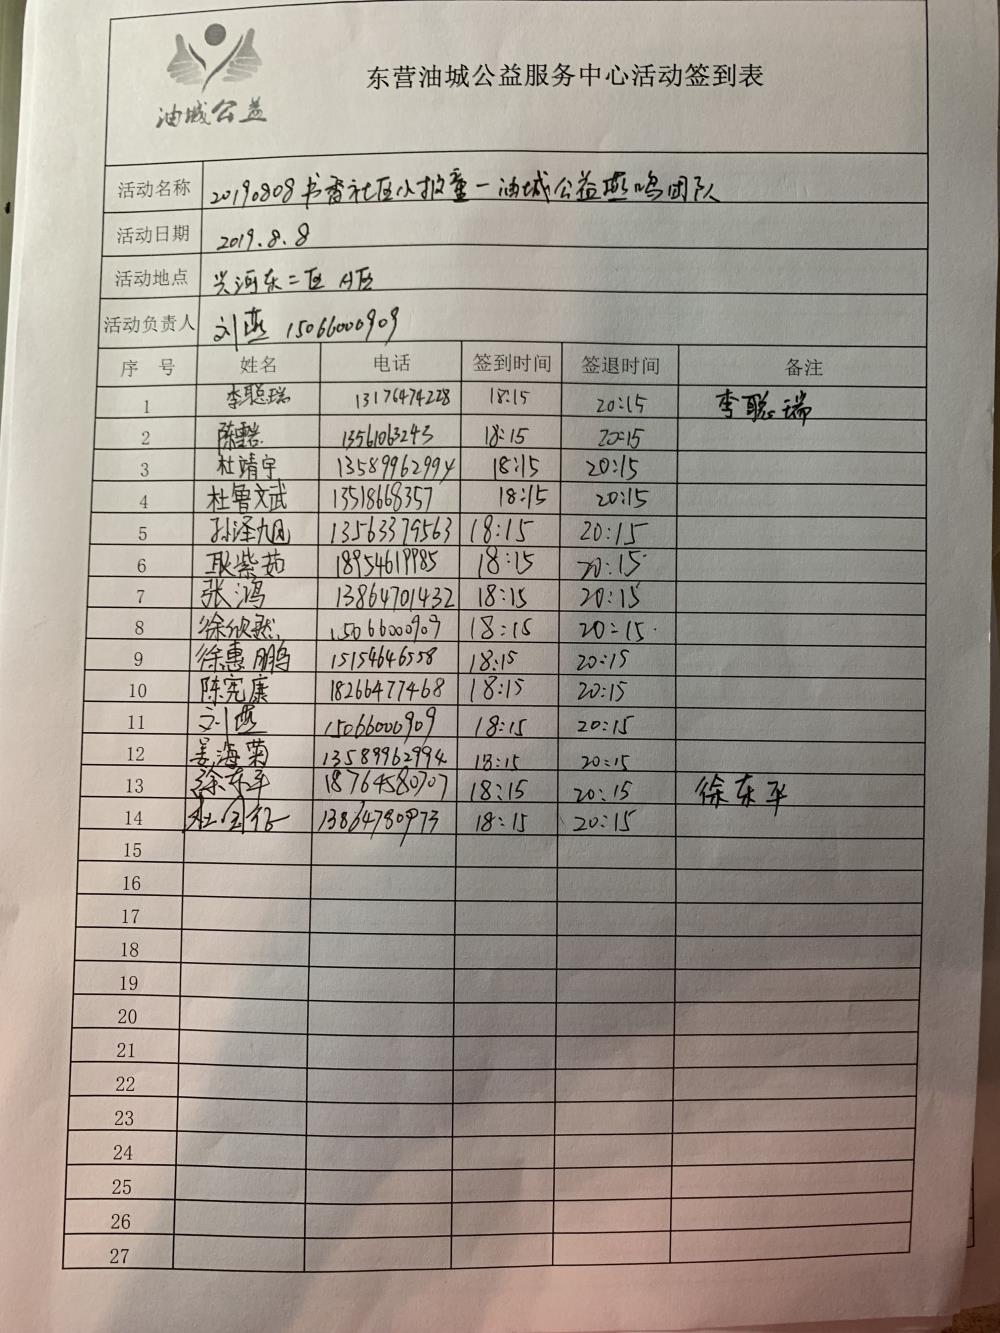 油城公益
东营油城公益服务中心活动签到表
活动名称 20190808书香社区小报童一油城公益燕鸣团队
活动日期 2019.8.8
活动地点 兴河东二区 A区
活动负责人 刘燕 15066000909
序号 姓名 电话 签到时间 签退时间 备注
1 李聪瑞 13176474228 18:15 20:15 李聪瑞
2 13561063243 18:15 20:15
3 杜靖宇 13589962994 18:15 20:15
4 杜鲁文武 13518668357 18:15 20:15
5 孙泽旭 13563379563 18:15 20:15
6 耿紫茹 18954619985 18:15 20:15
7 张鸿 13864701432 18:15 20:15
8 徐欣然 15066000909 18:15 20:15
9 徐惠鹏 15154646558 18:15 20:15
10 陈宪康 18266477468 18:15 20:15
11 刘燕 15066000909 18:15 20:15
12 姜海菊 13589962994 18:15 20:15
13 徐东平 18764580707 18:15 20:15 徐东平
14 13864780973 18:15 20:15
15
16
17
18
19
20
21
22
23
24
25
26
27